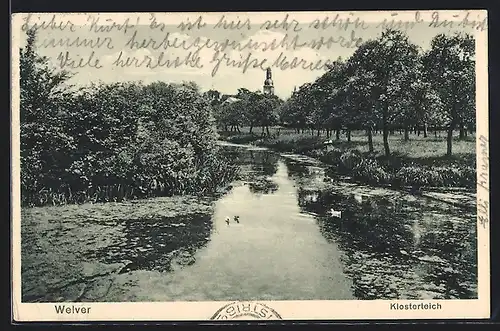 Lieber "Kurt"! Es ist hier sehr schön und Du bist
immer herbeigewünscht worden.
Viele herzliche Grüße
Welver
Klosterteich